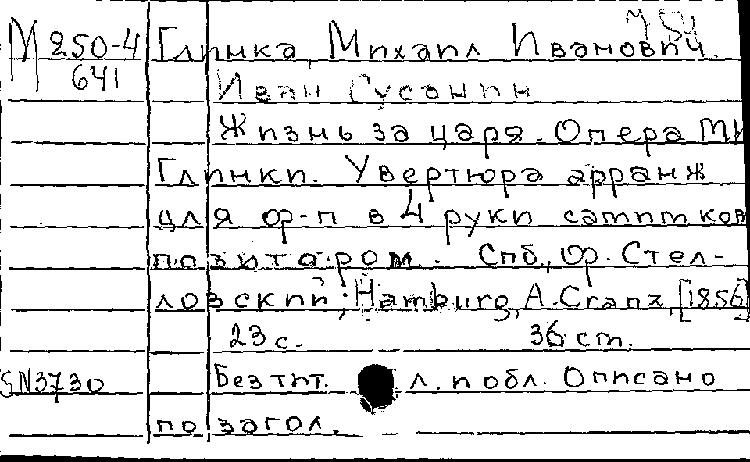 М 250-4
641
Глинка, Михаил Иванович.
Иван Сусанин
Жизнь за царя. Опера М.И.
Глинки. Увертюра арранж
для ф-п в 4 руки самим ком
позитором. Спб., Ф. Стел-
ловский; Hamburg, A. Cranz, [1856]
23 с. 36 cm.
SN3730 Без тит. л. и обл. Описано
по загол.